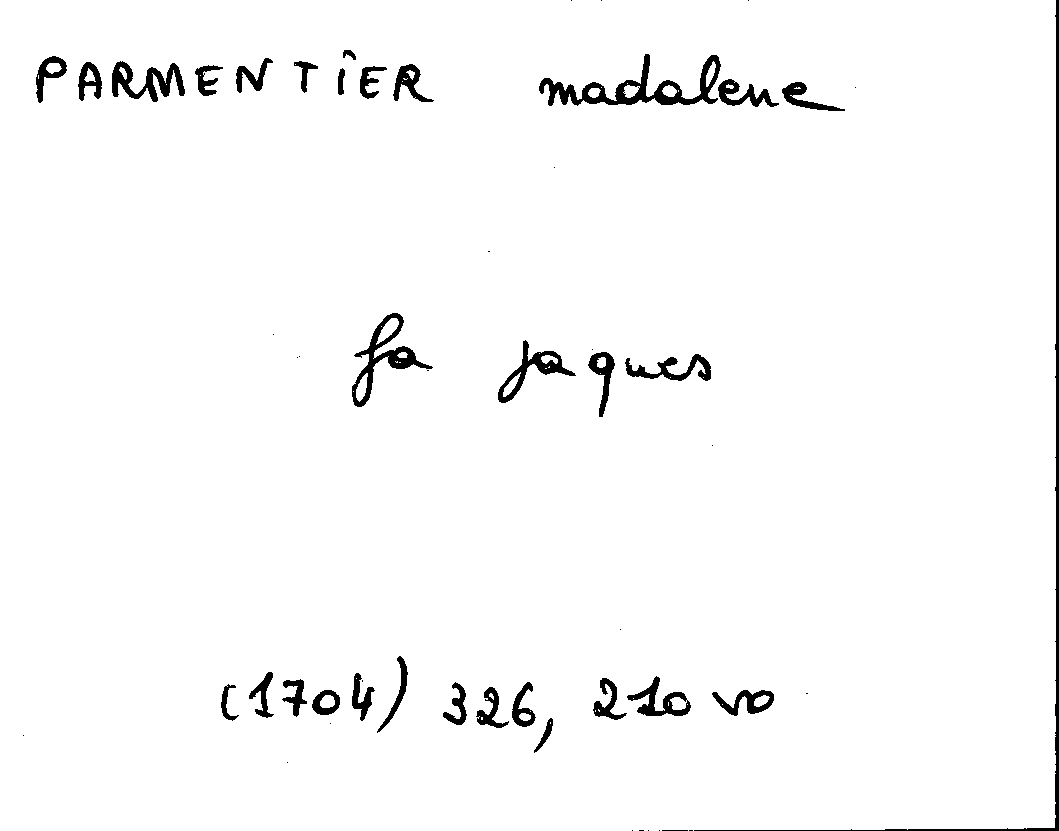 PARMENTIER madalene
fa jaques
(1704) 326, 210 vo